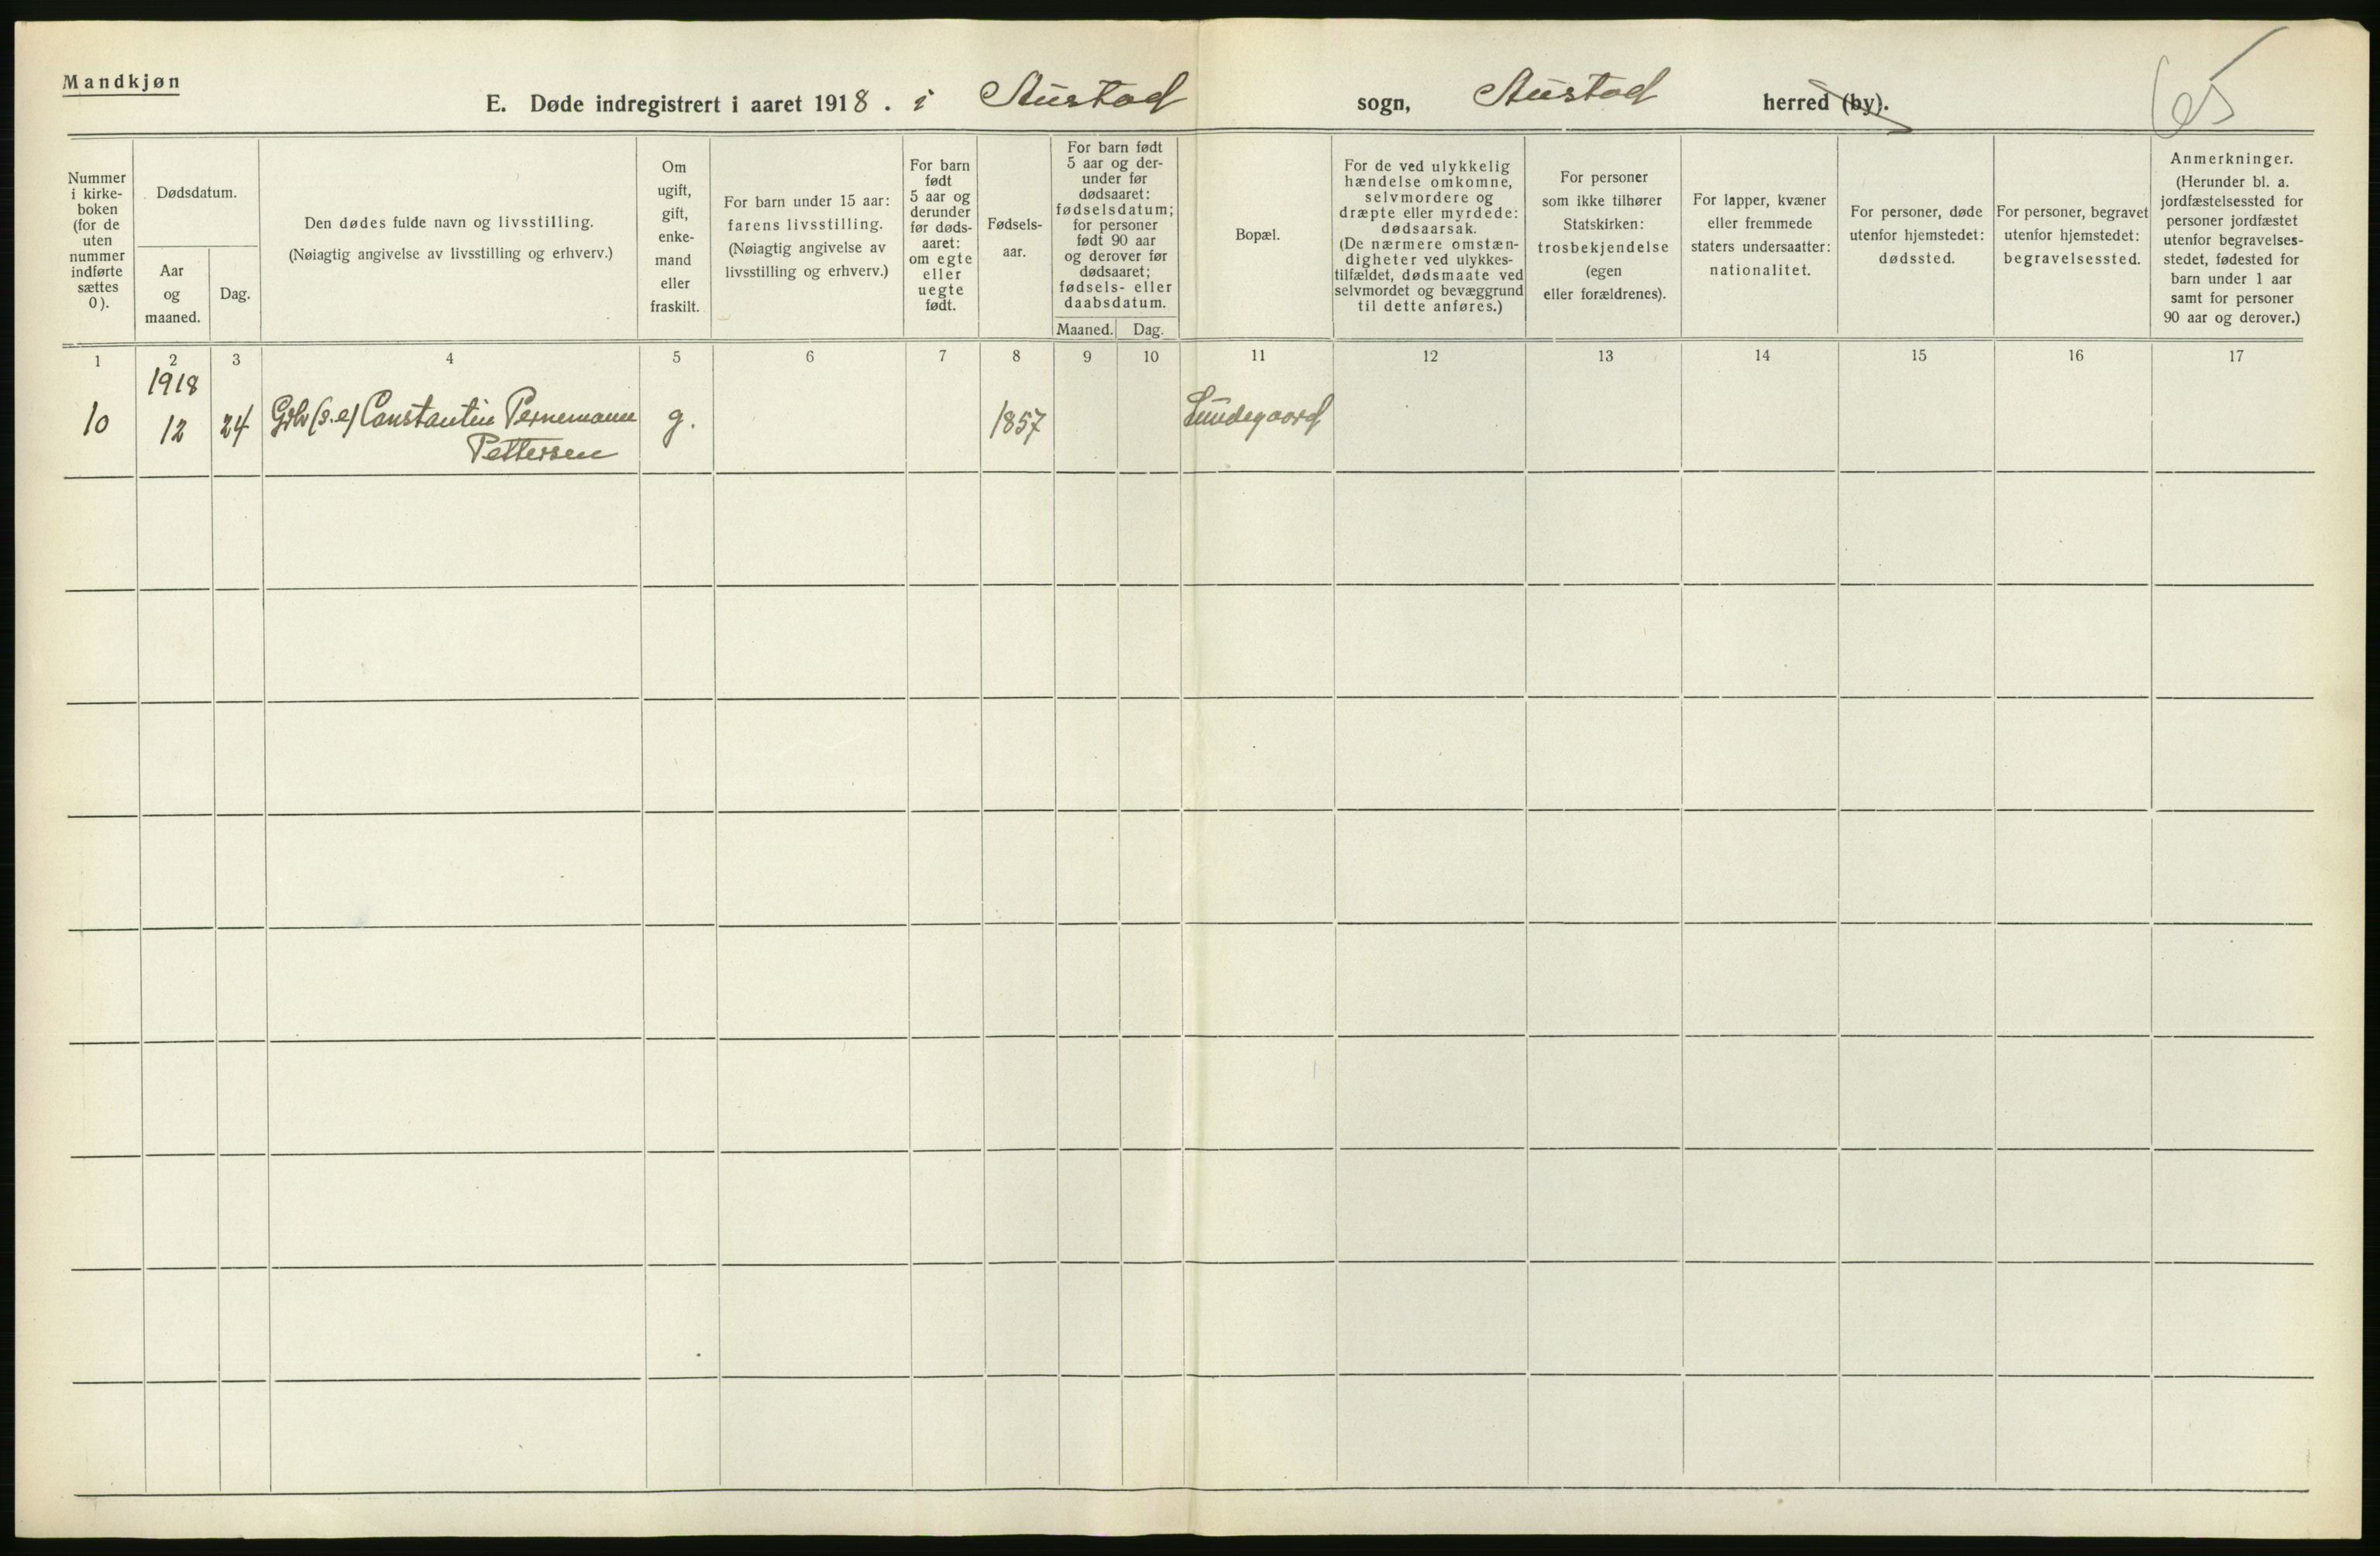 Mandkjøn
E. Døde indregistrert i aaret 1918. i Austad sogn, Austad herred (by).
Nummer
i kirke-
boken
(for de
uten
nummer
indførte
sættes
0).
Dødsdatum.
Aar
og
maaned.
Dag.
Den dødes fulde navn og livsstilling.
(Nøiagtig angivelse av livsstilling og erhverv.)
Om
ugift,
gift,
enke-
mand
eller
fraskilt.
For barn under 15 aar:
farens livsstilling.
(Nøiagtig angivelse av
livsstilling og erhverv.)
For barn
født
5 aar og
derunder
før døds-
aaret:
om egte
eller
uegte
født.
Fødsels-
aar.
For barn født
5 aar og der-
under før
dødsaaret:
fødselsdatum;
for personer
født 90 aar
og derover før
dødsaaret;
fødsels- eller
daabsdatum.
Maaned.
Dag.
Bopæl.
For de ved ulykkelig
hændelse omkomne,
selvmordere og
dræpte eller myrdede:
dødsaarsak.
(De nærmere omstæn-
digheter ved ulykkes-
tilfældet, dødsmaate ved
selvmordet og bevæggrund
til dette anføres.)
For personer
som ikke tilhører
Statskirken:
trosbekjendelse
(egen
eller forældrenes).
For lapper, kvæner
eller fremmede
staters undersaatter:
nationalitet.
For personer, døde
utenfor hjemstedet:
dødssted.
For personer, begravet
utenfor hjemstedet:
begravelsessted.
Anmerkninger.
(Herunder bl. a.
jordfæstelsessted for
personer jordfæstet
utenfor begravelses-
stedet, fødested for
barn under 1 aar
samt for personer
90 aar og derover.)
1 2 3 4 5 6 7 8 9 10 11 12 13 14 15 16 17
1918
10 12 24 (s.e) Constantin Pernemann g. 1857 Lundegaard
Pettersen